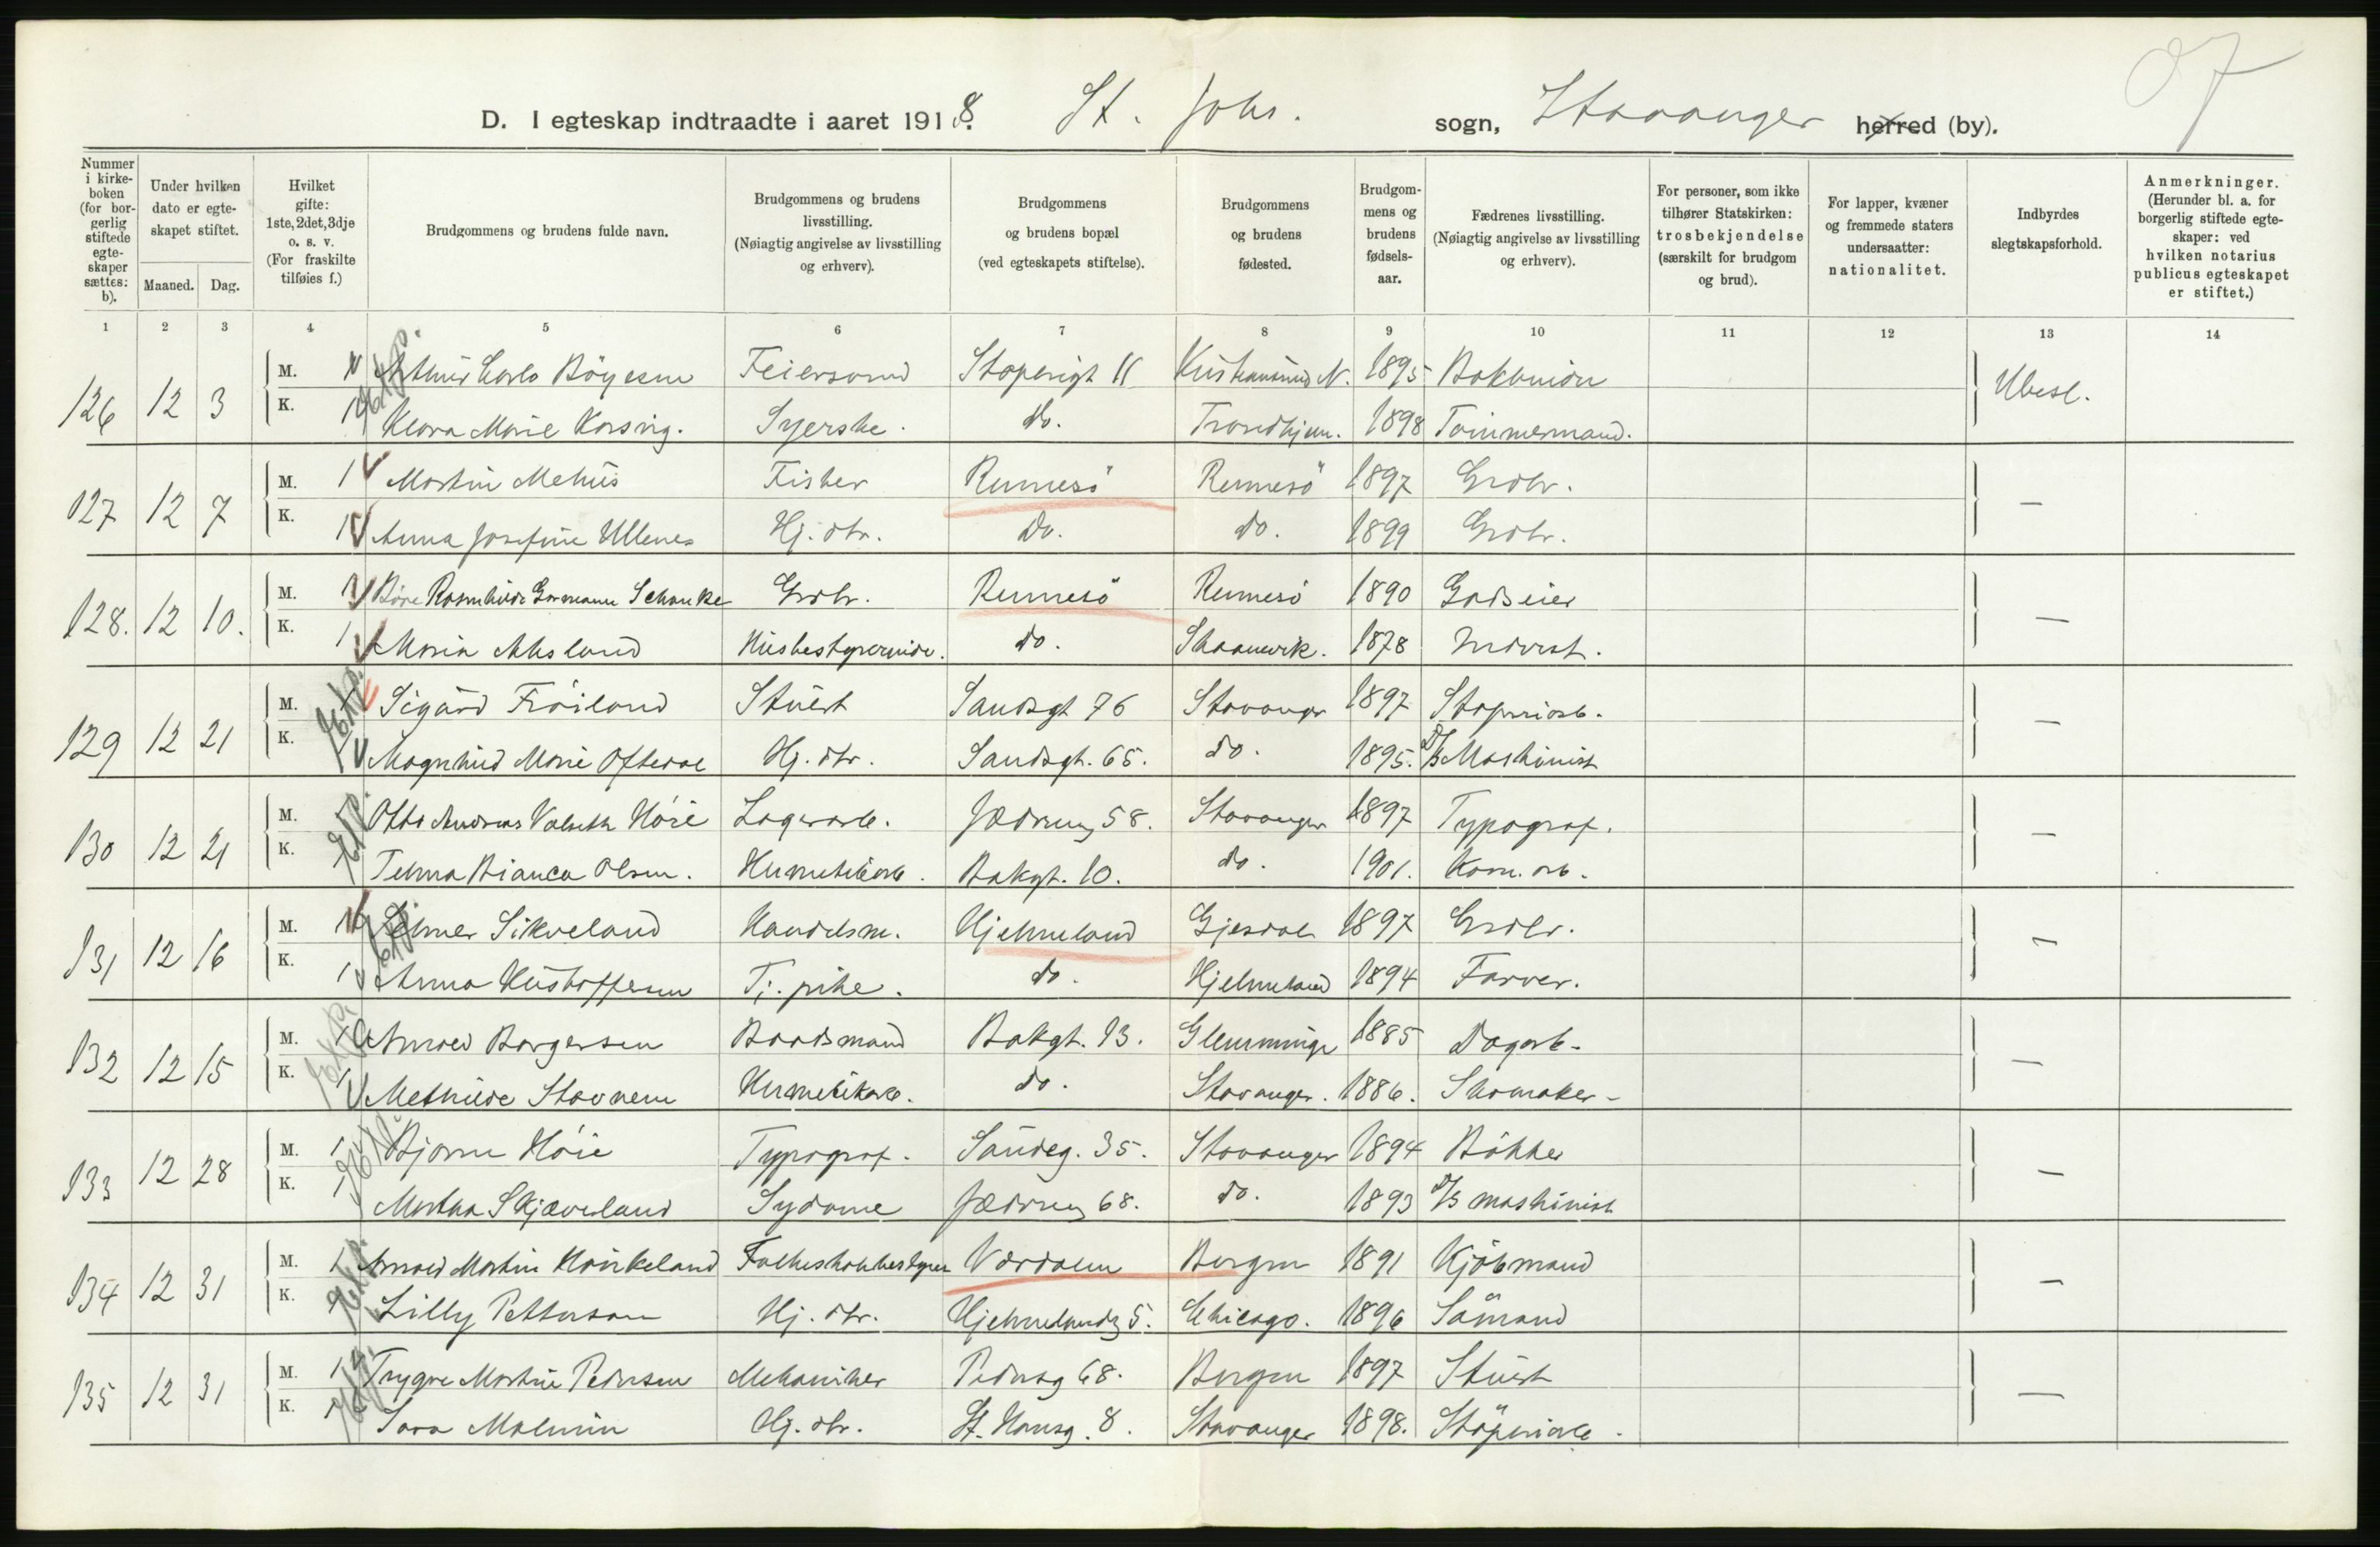 D. I egteskap indtraadte i aaret 1918. St. Johs. sogn, Stavanger herred (by).
Nummer i kirkeboken (for borgerlig stiftede egteskaper sættes: b).
Under hvilken dato er egteskapet stiftet.
Maaned. Dag.
Hvilket gifte: 1ste, 2det, 3dje o. s. v. (For fraskilte tilføies f.)
Brudgommens og brudens fulde navn.
Brudgommens og brudens livsstilling. (Nøiagtig angivelse av livsstilling og erhverv).
Brudgommens og brudens bopæl (ved egteskapets stiftelse).
Brudgommens og brudens fødested.
Brudgommens og brudens fødselsaar.
Fædrenes livsstilling. (Nøiagtig angivelse av livsstilling og erhverv).
For personer, som ikke tilhører Statskirken: trosbekjendelse (særskilt for brudgom og brud).
For lapper, kvæner og fremmede staters undersaatter: nationalitet.
Indbyrdes slegtskapsforhold.
Anmerkninger. (Herunder bl. a. for borgerlig stiftede egteskaper: ved hvilken notarius publicus egteskapet er stiftet.)
1 2 3 4 5 6 7 8 9 10 11 12 13 14
126 12 3 M. 1 Böyesen Feiersvend Støperigt 11 Kristiansund N. 1895 Ubesl.
K. 1 Klara Marie Korsvig. Syerske. do. Trondhjem. 1898 Tømmermand.
127 12 7 M. 1 Martin Mehus Fisker Rennesö Rennesö 1897 Grdbr. —
K. 1 Anna Josefine Ullenes Hj. dtr. do. do. 1899 Grdbr.
128. 12 10. M. 1 Schanke Grdbr. Rennesö Rennesö 1890 Godseier —
K. 1 Maria Husbestyrerinde. do. Skaanevik. 1878 Inderst.
129 12 21 M. 1 Sigurd Fröiland Stuert Sandsgt 76 Stavanger 1897 —
K. 1 Magnhild Marie Oftedal Hj. dtr. Sandsgt. 65. do. 1895. D/S Maskinist
130 12 21 M. 1 Otto Andreas Höie Lagerarb. Jædrveg 58. Stavanger 1897 Typograf. —
K. 1 Telma Bianca Olsen. Hermetikarb. Bakgt. 10. do. 1901. Kom. arb.
131 12 16 M. 1 Sikveland Handelsm. Hjelmeland Gjesdal 1897 Grdbr. —
K. 1 Anna Kristoffersen Tj. pike. do. Hjelmeland 1894 Farver.
132 12 15 M. 1 Borgersen Baadsmand Bakgt. 13. Glemminge 1885 Dagarb. —
K. 1 Methilde Stavnem Hermetikarb. do. Stavanger. 1886. Skomaker
133 12 28 M. 1 Bjarne Höie Typograf. Sandeg. 35. Stavanger 1894 Bökker —
K. 1 Martha Skjæveland Sydame Jædrveg 68. do. 1893 D/S maskinist
134 12 31 M. 1 Arnold Martin Haukeland Værdalen Bergen 1891 Kjöbmand —
K. 1 Lilly Petterson Hj. dtr. Hjelmelandsg 5. Chicago. 1896 Sömand
135 12 31 M. 1 Trygve Martin Pedersen Mekaniker Pedersg 68. Bergen 1897 Stuert —
K. 1 Sara Malmin Hj. dtr. St. Hansg. 8. Stavanger 1898. Støperiarb.